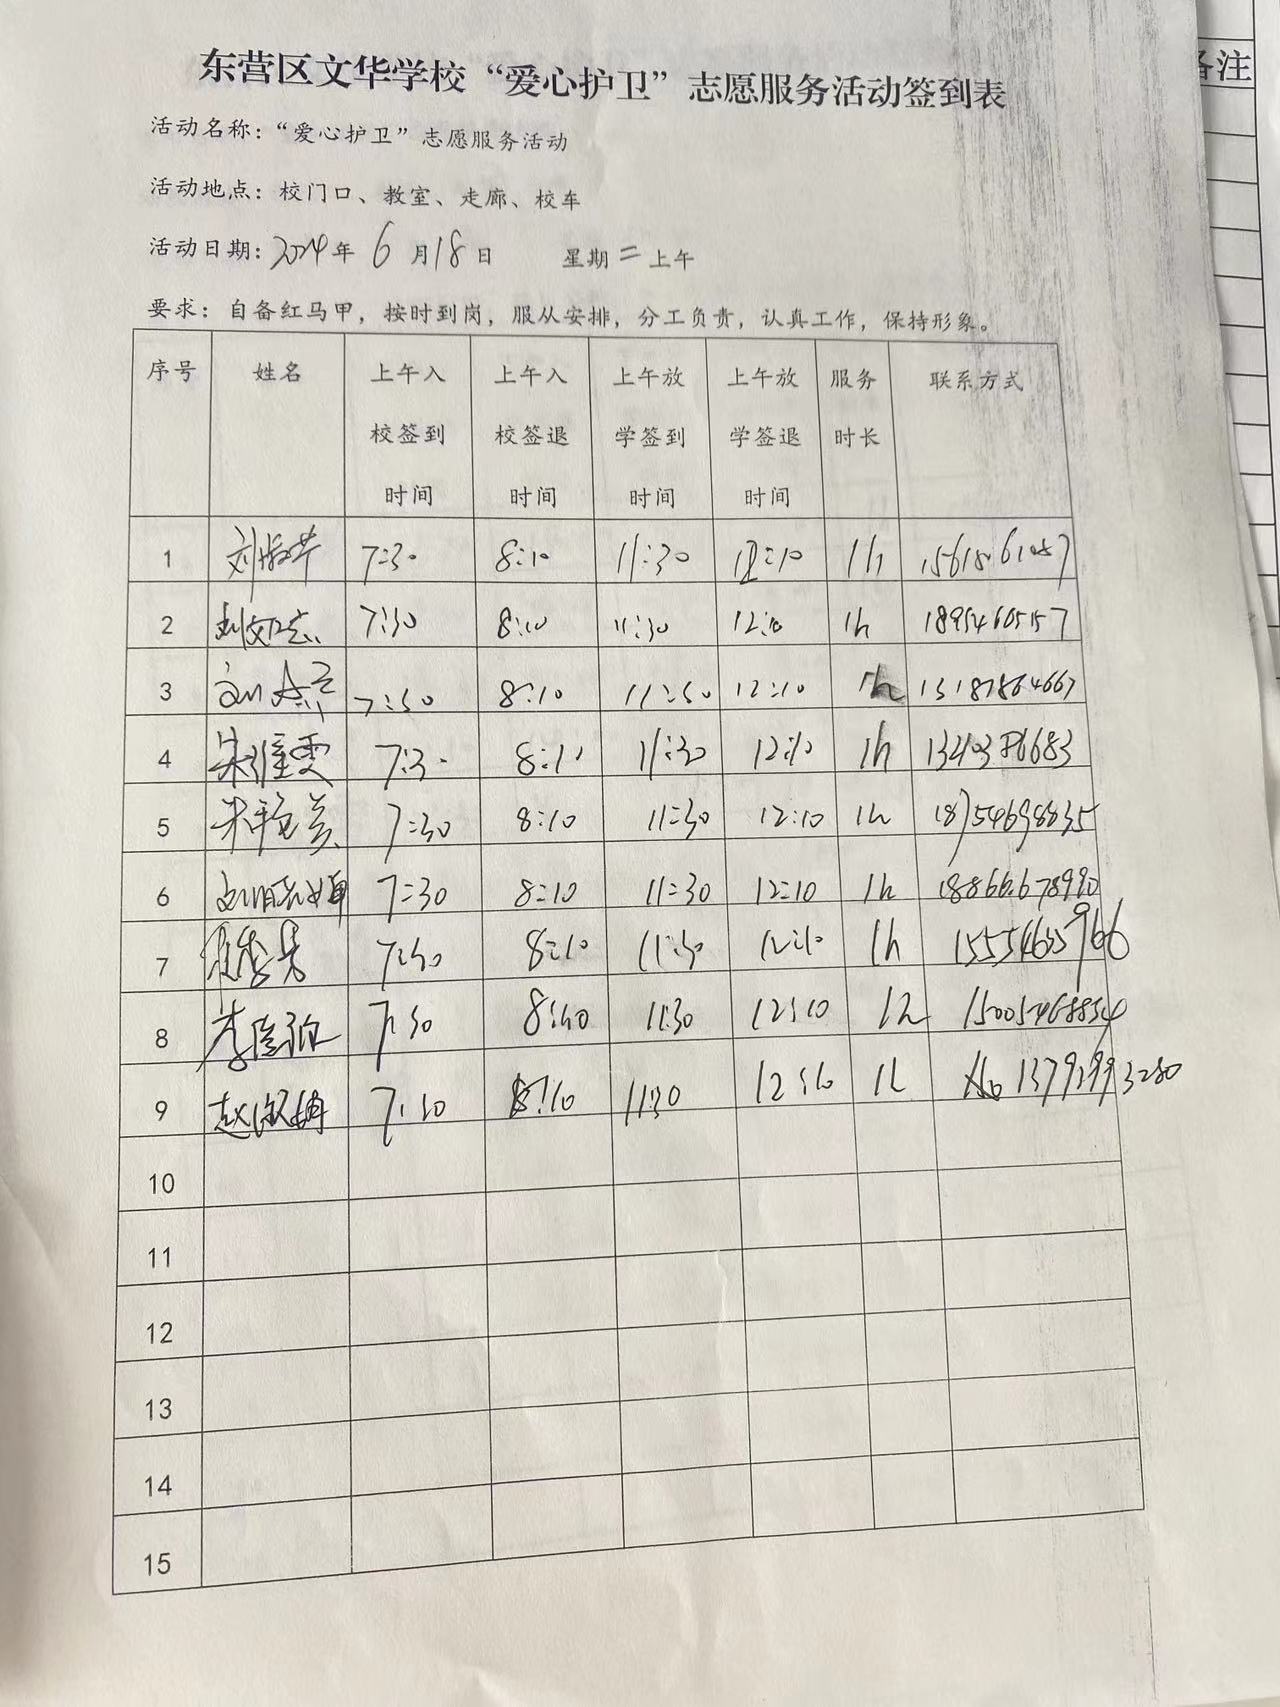 备注
东营区文华学校“爱心护卫”志愿服务活动签到表
活动名称：“爱心护卫”志愿服务活动
活动地点：校门口、教室、走廊、校车
活动日期：2024年 6 月18日 星期二上午
要求：自备红马甲，按时到岗，服从安排，分工负责，认真工作，保持形象。
序号 姓名 上午入校签到时间 上午入校签退时间 上午放学签到时间 上午放学签退时间 服务时长 联系方式
1 7:30 8:10 11:30 12:10 1h
2 7:30 8:10 11:30 12:10 1h 18954605157
3 7:30 8:10 11:30 12:10 1h 13181864667
4 7:30 8:10 11:30 12:10 1h
5 7:30 8:10 11:30 12:10 1h 18754698835
6 7:30 8:10 11:30 12:10 1h 18866678990
7 7:30 8:10 11:30 12:10 1h
8 7:30 11:30 12:10 1h 15005468854
9 7:30 8:10 11:30 12:10 1h 13792993280
10
11
12
13
14
15